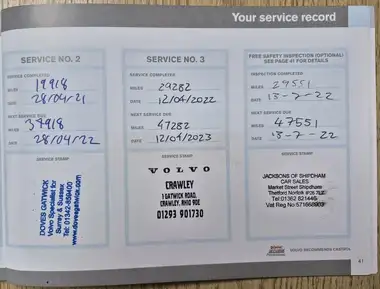 Your service record
SERVICE NO. 2
SERVICE COMPLETED
MILES 19918
DATE 28/04/21
NEXT SERVICE DUE
MILES 37918
DATE 28/04/22
SERVICE STAMP
DOVES GATWICK
Volvo Specialist for
Surrey & Sussex
Tel: 01342-859400
www.dovesgatwick.com
SERVICE NO. 3
SERVICE COMPLETED
MILES 29282
DATE 12/04/2022
NEXT SERVICE DUE
MILES 47282
DATE 12/04/2023
SERVICE STAMP
VOLVO
CRAWLEY
1 GATWICK ROAD,
CRAWLEY, RH10 9DE
01293 901730
FREE SAFETY INSPECTION (OPTIONAL)
SEE PAGE 41 FOR DETAILS
INSPECTION COMPLETED
MILES 29551
DATE 13-7-22
NEXT SERVICE DUE
MILES 47551
DATE 13-7-22
SERVICE STAMP
JACKSONS OF SHIPDHAM
CAR SALES
Market Street Shipdham
Thetford Norfolk IP25 7LZ
Tel: 01362 821440
Vat Reg No
VOLVO RECOMMENDS CASTROL
41